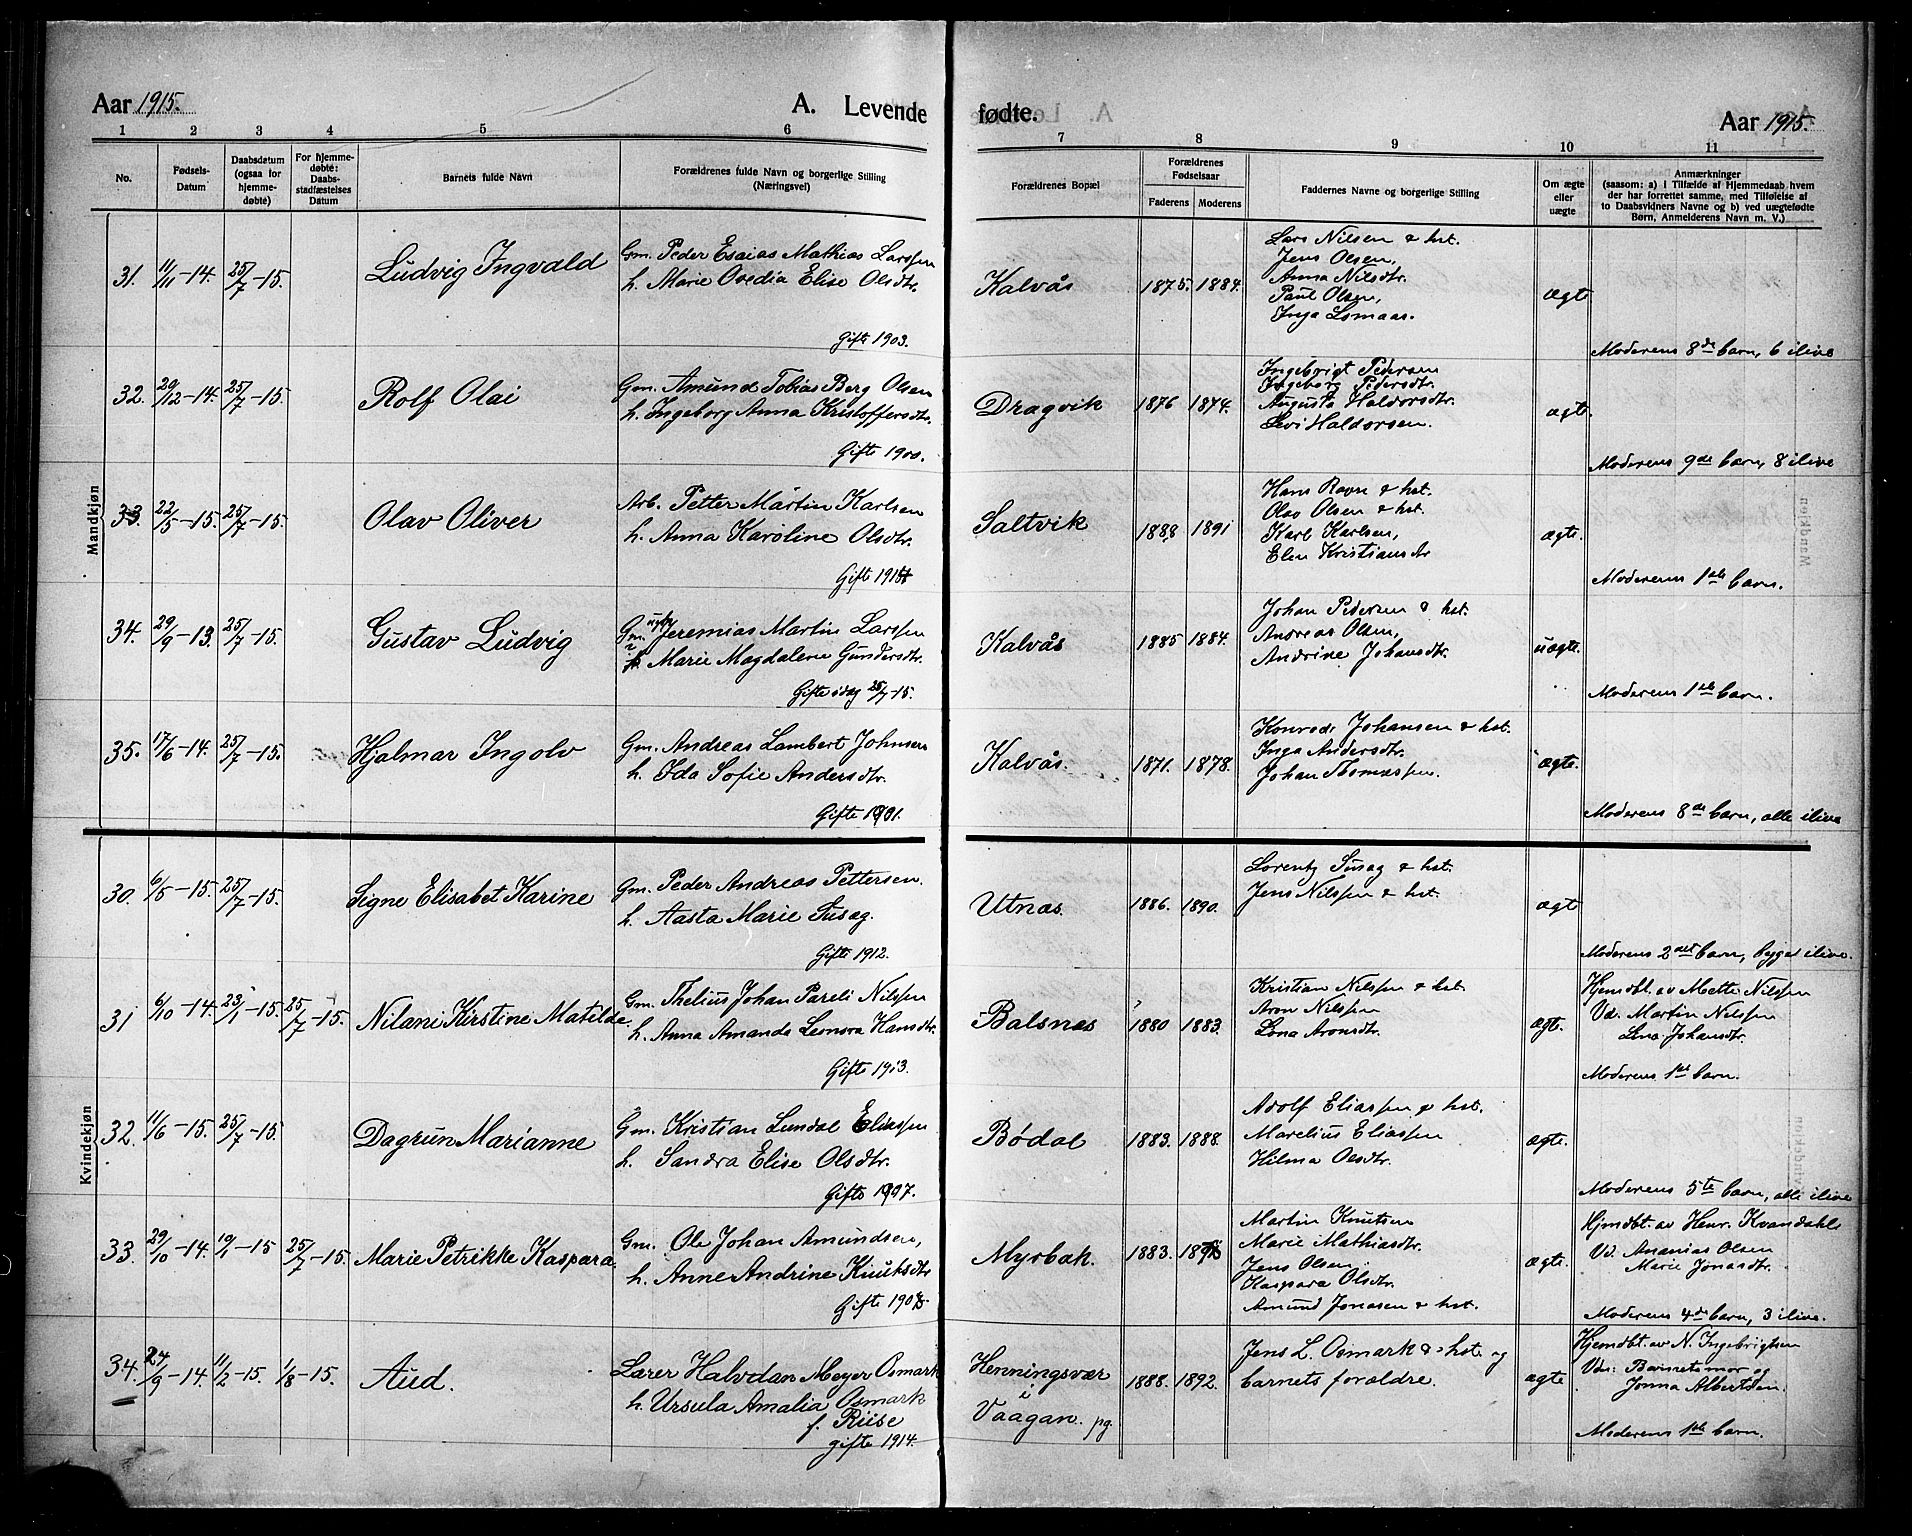 Aar 1915. A. Levende fødte. Aar 1915.
1 2 3 4 5 6 7 8 9 10 11
No.
Fødsels-
Datum
Daabsdatum
(ogsaa for
hjemme-
døbte)
For hjemme-
døbte:
Daabs-
stadfæstelses
Datum
Barnets fulde Navn
Forældrenes fulde Navn og borgerlige Stilling
(Næringsvei)
Forældrenes Bopæl
Forældrenes
Fødselsaar
Faderens Moderens
Faddernes Navne og borgerlige Stilling
Om ægte
eller
uægte
Anmærkninger
(saasom: a) i Tilfælde af Hjemmedaab hvem
der har forrettet samme, med Tilføielse af
to Daabsvidners Navne og b) ved uægtefødte
Børn, Anmelderens Navn m. V.)
Mandkjøn
31. 11/11-14. 25/7-15. Ludvig Ingvald
Gm. Peder Esaias Mathias Larssen
h. Marie Ovedia Elise Olsdtr.
Gifte 1903.
Kalvås 1875. 1884.
Lars Nilsen & hst.
Jens Olsen,
Anna Nilsdtr.
Paul Olsen,
Inga Lomaas.
ægte
Moderens 8de barn, 6 ilive
32. 29/12-14. 25/7-15. Rolf Olai
Gm. Amund Tobias Berg Olsen
h. Ingeborg Anna Kristoffersdtr.
Gifte 1900.
Dragvik 1876 1874.
Ingebrigt Pedersen
Ingeborg Pedersdtr.
Augusta Haldorsdtr.
Levi Haldorsen.
ægte.
Moderens 9de barn, 8 ilive
33. 22/5-15. 25/7-15. Olav Oliver
Arb. Petter Mårtin Karlsen
h. Anna Karoline Olsdtr.
Gifte 1914
Saltvik 1888 1891
Hans Ravn & hst.
Olav Olsen & hst.
Karl Karlsen,
Elen Kristiansdtr
ægte.
Moderens 1ste barn.
34. 29/9-13. 25/7-15. Gustav Ludvig
Gm. Jeremias Martin Larssen
Marie Magdalene Gundersdtr.
Gifte idag 25/7-15.
Kalvås 1885 1884.
Johan Pedersen & hst.
Andreas Olsen,
Andrine Johansdtr.
uægte.
Moderens 1ste barn.
35. 17/6-14. 25/7-15. Hjalmar Ingolv
Gm. Andreas Lambert Johnsen
h. Ida Sofie Andersdtr.
Gifte 1901.
Kalvås. 1871. 1878.
Konrad Johansen & hst.
Inga Andersdtr.
Johan Thomassen.
ægte.
Moderens 8de barn, alle ilive
Kvindekjøn
30. 6/5-15. 25/7-15. Signe Elisabet Karine
Gm. Peder Andreas Pettersen.
h. Aasta Marie Susag.
Gifte 1912.
Utnas. 1886. 1890.
Lorentz Susag & hst.
Jens Nilssen & hst.
ægte
Moderens 2det barn, begge ilive.
31 6/10-14. 23/1-15. 25/7-15. Nilani Kirstine Matilde
Gm. Thelius Johan Pareli Nilssen
h. Anna Amanda Leonora Hansdtr.
Gifte 1913.
Balsnes 1880 1883.
Kristian Nilssen & hst.
Aron Nilssen
Lona Aronsdtr.
ægte.
Hjemdbt. av Mette Nilssen
Vd. Martin Nilssen
Lina Johansdtr.
Moderens 1ste barn.
32. 11/6-15. 25/7-15. Dagrun Marianne
Gm. Kristian Lundal Eliassen
h. Sandra Elise Olsdtr.
Gifte 1907.
Bødal 1883. 1888.
Adolf Eliassen & hst.
Marelius Eliassen
Hilma Olsdtr.
ægte.
Moderens 5te barn, alle ilive
33. 29/10-14. 19/1-15 25/7-15. Marie Petrikke Kaspara
Gm. Ole Johan Amundsen,
h. Anne Andrine Knutsdtr
Gifte 190
Myrbak. 1883.
Martin Knutsen
Marie Mathiasdtr.
Jens Olsen
Kaspara Olsdtr.
Amund Jonasen & hst.
ægte.
Hjmdbt. av Henr. Kvandahl
Vd. Ananias Olsen
Marie Jonasdtr.
Moderens 4de barn, 3 ilive.
34. 24/9-14. 11/2-15. 1/8-15. Aud.
Lærer Halvdan Meyer Osmark
h. Ursula Amalia Osmark
f. Riise
gifte 1914.
Henningsvær
i
Vaagan. pg. 1888. 1892.
Jens L. Osmark & hst. og
barnets forældre.
ægte
Hjemdbt. av N. Ingebrigtsen
Vdn: Barnets mor og
Jonna Albertsen.
Moderens 1ste barn.